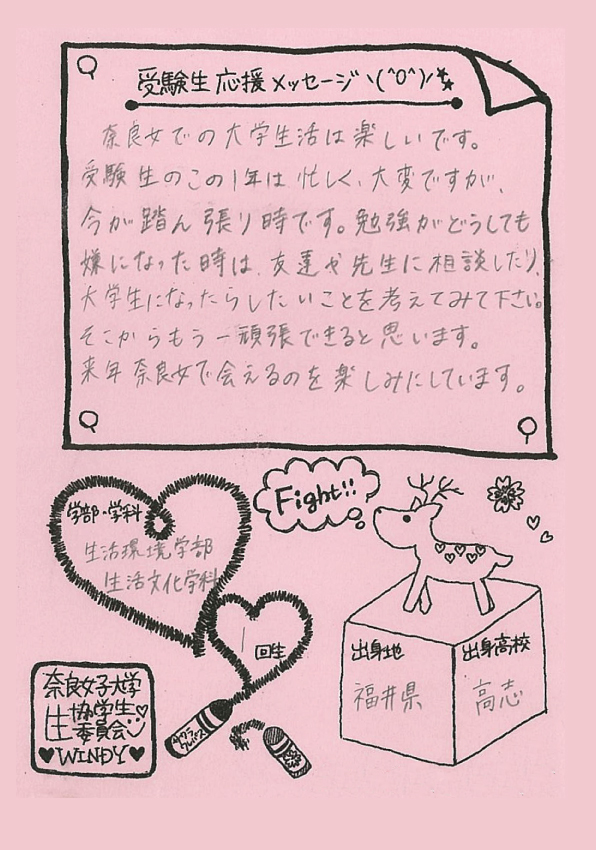 受験生応援メッセージヽ(^0^)ﾉ
奈良女での大学生活は楽しいです。
受験生のこの1年は忙しく、大変ですが、
今が踏ん張り時です。勉強がどうしても
嫌になった時は、友達や先生に相談したり、
大学生になったらしたいことを考えてみて下さい。
そこからもう一頑張できると思います。
来年奈良女で会えるのを楽しみにしています。
Fight!!
学部・学科
生活環境学部
生活文化学科
1回生
出身地
福井県
出身高校
高志
奈良女子大学
生協学生
委員会
WINDY
サクラ
クレパス